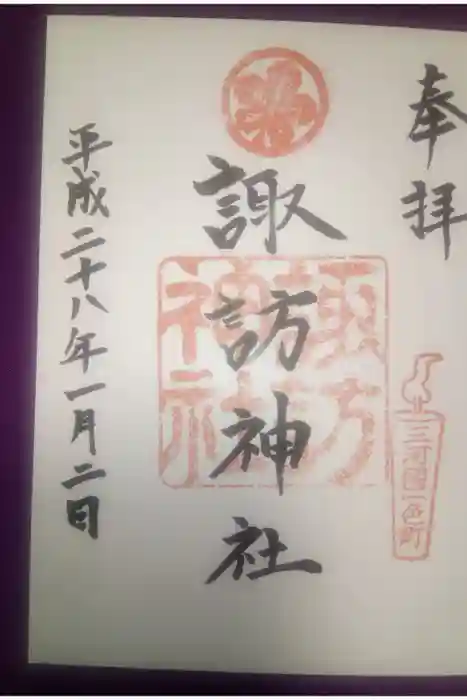 奉拝
三河國一色町
諏訪神社
諏訪
神社
平成二十八年一月二日